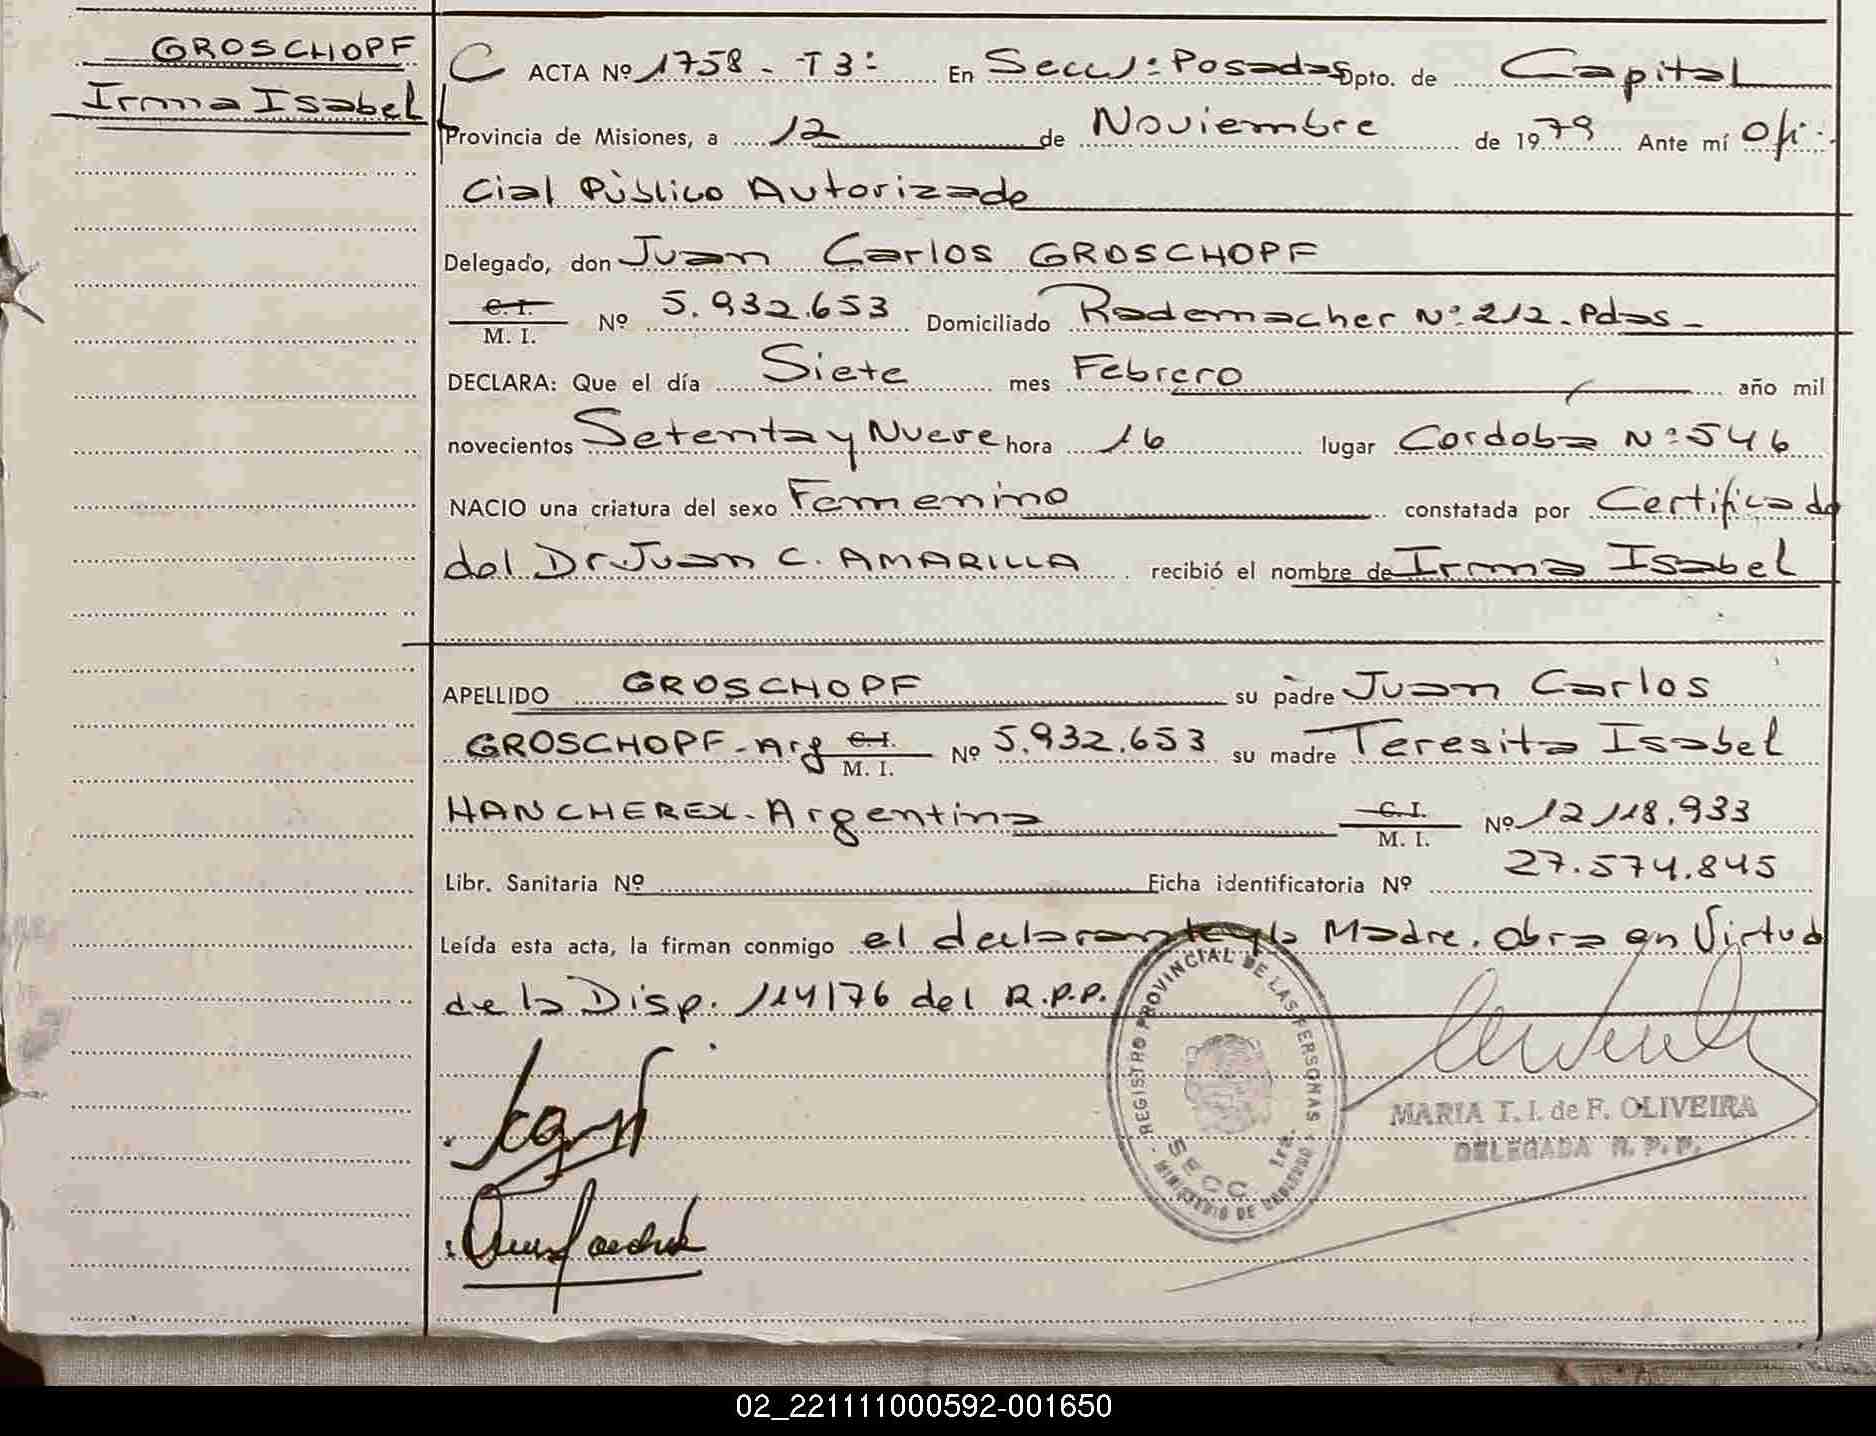 GROSCHOPF
Irma Isabel
C ACTA Nº 1758 - T3: En Secc 1ª Posadas Dpto. de Capital
Provincia de Misiones, a 12 de Noviembre de 1979 Ante mí Ofi-
cial Público Autorizado
Delegado, don Juan Carlos GROSCHOPF
C. I.
M. I. Nº 5.932.653 Domiciliado Rademacher Nº 212. Pdas -
DECLARA: Que el día Siete mes Febrero año mil
novecientos Setenta y Nueve hora 16 lugar Cordoba Nº 546
NACIO una criatura del sexo Femenino constatada por Certificado
del Dr. Juan C. AMARILLA recibió el nombre de Irma Isabel
APELLIDO GROSCHOPF su padre Juan Carlos
GROSCHOPF - Arg C. I. M. I. Nº 5.932.653 su madre Teresita Isabel
HANCHEREK - Argentina C. I. M. I. Nº 12.118.933
Libr. Sanitaria Nº Ficha identificatoria Nº 27.574.845
Leída esta acta, la firman conmigo el declarante y la Madre. Obra en Virtud
de la Disp. 114/76 del R.P.P.
REGISTRO PROVINCIAL DE LAS PERSONAS
SECC 1ra.
MINISTERIO DE GOBIERNO
MARIA T. I. de F. OLIVEIRA
DELEGADA R. P. P.
02_221111000592-001650